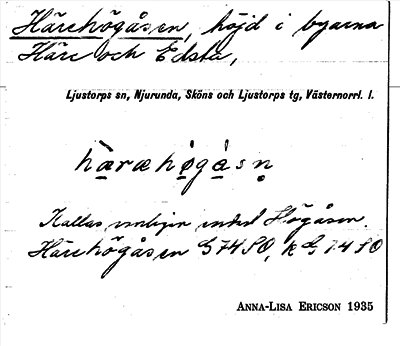 Härehögåsen, höjd i byarna
Häre och Edsta,
Ljustorps sn, Njurunda, Sköns och Ljustorps tg, Västernorrl. l.
hàræhø̣gåsn̥
Kallas vanligen endast Högåsen.
Härehögåsen G7450, k
ANNA-LISA ERICSON 1935